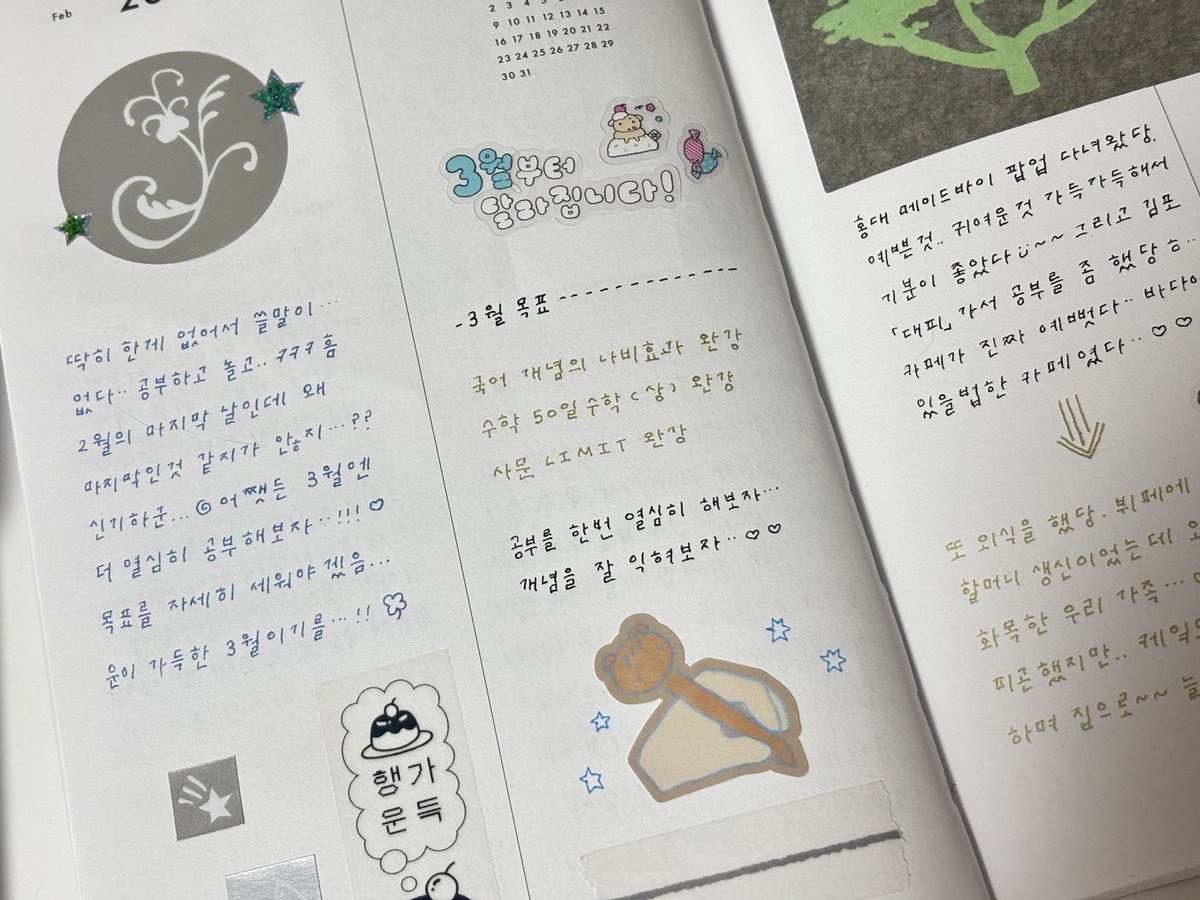 Feb
딱히 한게 없어서 쓸말이…
없다.. 공부하고 놀고.. ㅋㅋㅋ 흠
2월의 마지막 날인데 왜
마지막인것 같지가 않지…??
신기하군… 어쨋든 3월엔
더 열심히 공부해보자..!!! ♡
목표를 자세히 세워야겠음…
운이 가득한 3월이기를…!!
행가
운득
2 3 4
9 10 11 12 13 14 15
16 17 18 19 20 21 22
23 24 25 26 27 28 29
30 31
3월부터
달라집니다!
-3월 목표----------------
국어 개념의 나비효과 완강
수학 50일수학(상) 완강
사문 LIMIT 완강
공부를 한번 열심히 해보자…
개념을 잘 익혀보자.. ♡♡
홍대 메이드바이 팝업 다녀왔당.
예쁜것.. 귀여운것 가득가득해서
기분이 좋았다~~ 그리고 김포
「대피」 가서 공부를 좀 했당ㅎ..
카페가 진짜 예뻤다.. 바다에
있을법한 카페였다.. ♡♡
또 외식을 했당. 뷔페에
할머니 생신이었는데
화목한 우리 가족…
피곤했지만..
하며 집으로~~